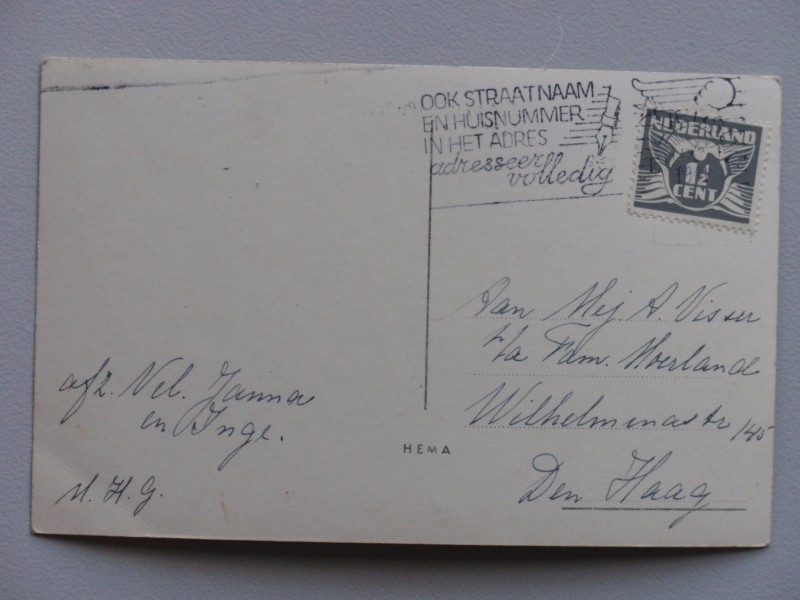 OOK STRAATNAAM
EN HUISNUMMER
IN HET ADRES
adresseer
volledig
NEDERLAND
1½
CENT
Aan Mej. A. Visser
t/a Fam. Hoerland
Wilhelminastr 145
Den Haag
afz. Nel. Janna
en Inge.
M. H. G.
HEMA